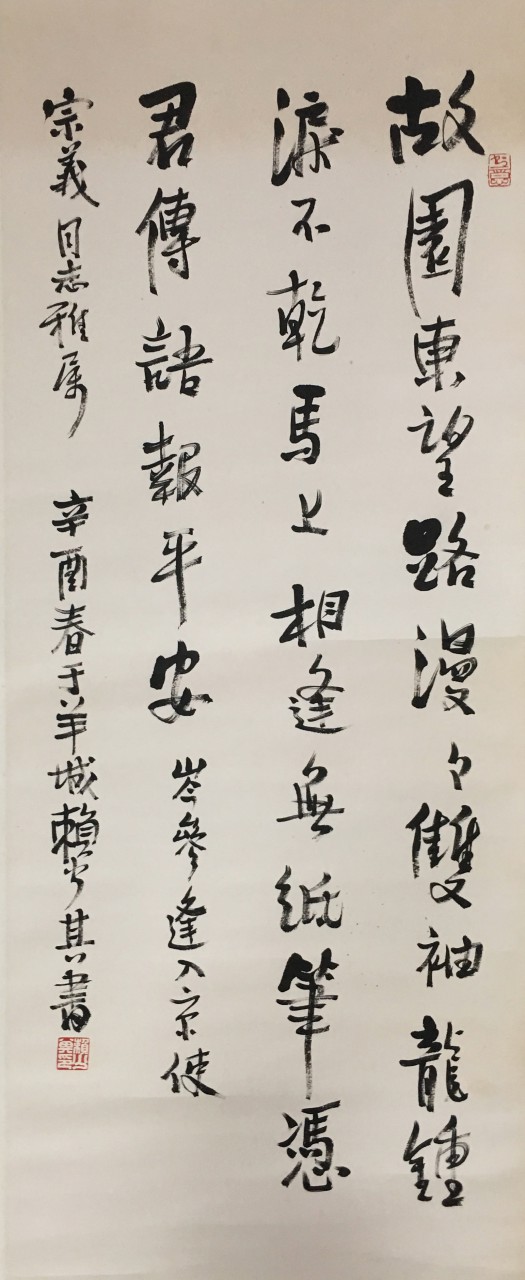 故園東望路漫々雙袖龍鍾
淚不乾馬上相逢無紙筆憑
君傳語報平安
岑參逢入京使
宗義同志雅属
辛酉春于羊城賴少其書